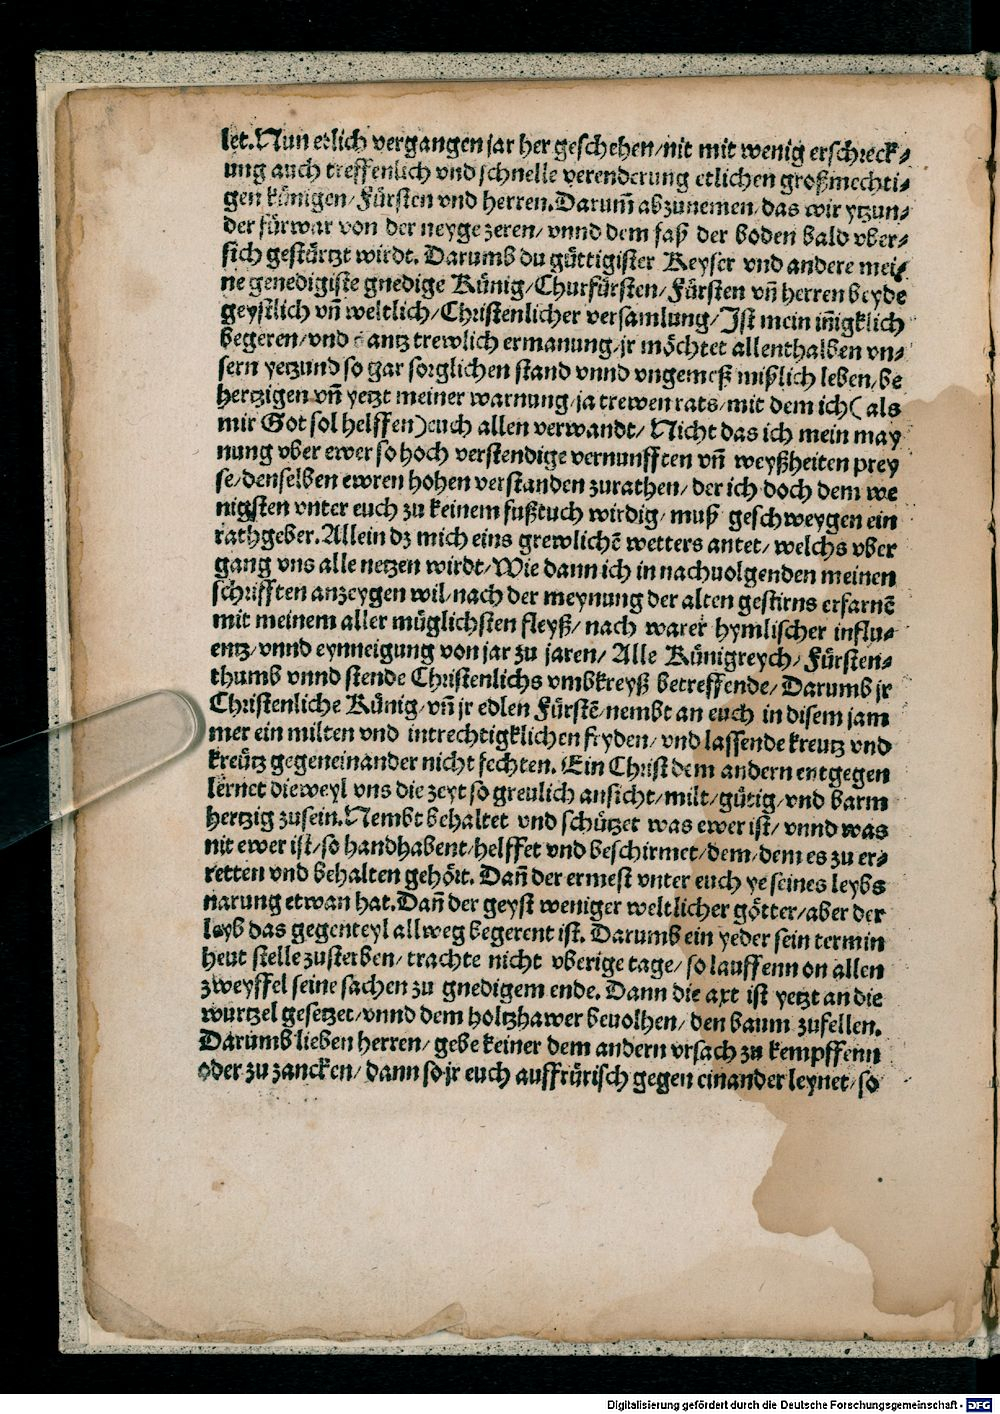 let. Nun etlich vergangen jar her geschehen/nit mit wenig erschreck⸗
ung auch treffenlich vnd schnelle verenderung etlichen großmechti⸗
gen künigen/ Fürsten vnd herren. Darum̃ abzunemen/das wir ytzun⸗
der fürwar von der neyge zeren/ vnnd dem faß der boden bald vber⸗
sich gestürtzt wirdt. Darumb du güttigister Keyser vnd andere mei⸗
ne genedigiste gnedige Künig/Churfürsten/ Fürsten vñ herren beyde
geystlich vñ weltlich/ Christenlicher versamlung/ Ist mein iñigklich
begeren/vnd gantz trewlich ermanung/jr möchtet allenthalben vn⸗
sern yetzund so gar sorglichen stand vnnd vngemeß mißlich leben/be
hertzigen vñ yetzt meiner warnung/ja trewen rats/mit dem ich( als
mir Got sol helffen)euch allen verwandt/ Nicht das ich mein may
nung vber ewer so hoch verstendige vernunfften vñ weyßheiten prey
se/denselben ewren hohen verstanden zurathen/ der ich doch dem we
nigsten vnter euch zu keinem fußtuch wirdig/ muß geschweygen ein
rathgeber. Allein dz mich eins grewlichẽ wetters antet/ welchs vber
gang vns alle netzen wirdt/Wie dann ich in nachuolgenden meinen
schrifften anzeygen wil/nach der meynung der alten gestirns erfarnẽ
mit meinem aller müglichsten fleyß/ nach warer hymlischer influ⸗
entz/vnnd eynneigung von jar zu jaren/ Alle Künigreych/ Fürsten⸗
thumb vnnd stende Christenlichs vmbkreyß betreffende/ Darumb jr
Christenliche Künig/vñ jr edlen Fürstẽ/nembt an euch in disem jam
mer ein milten vnd intrechtigklichen fryden/ vnd lassende kreutz vnd
kreütz gegeneinander nicht fechten. Ein Christ dem andern entgegen
lernet dieweyl vns die zeyt so greulich ansicht/milt/gütig/vnd barm
hertzig zusein. Nembt behaltet vnd schützet was ewer ist/ vnnd was
nit ewer ist/so handhabent/helffet vnd beschirmet/dem/dem es zu er⸗
retten vnd behalten gehört. Dañ der ermest vnter euch ye seines leybs
narung etwan hat. Dañ der geyst weniger weltlicher götter/aber der
leyb das gegenteyl allweg begerent ist. Darumb ein yeder sein termin
heut stelle zusterben/ trachte nicht vberige tage/ so lauffenn on allen
zweyffel seine sachen zu gnedigem ende. Dann die axt ist yetzt an die
wurtzel gesetzet/vnnd dem holtzhawer beuolhen/ den baum zufellen.
Darumb lieben herren/ gebe keiner dem andern vrsach zu kempffenn
oder zu zancken/ dann so jr euch auffrürisch gegen einander leynet/ so
Digitalisierung gefördert durch die Deutsche Forschungsgemeinschaft - DFG